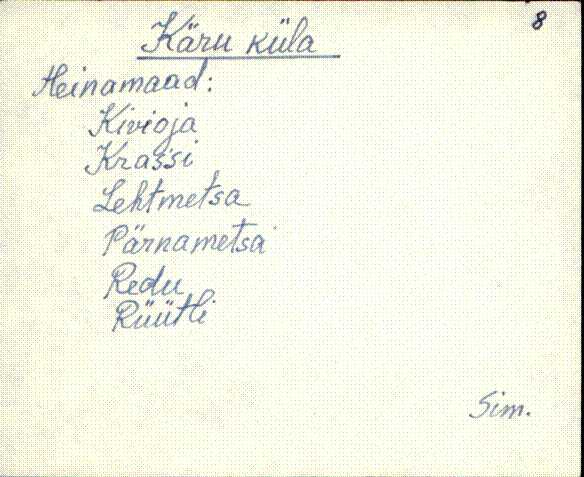 8
Käru küla
Heinamaad:
Kivioja
Krassi
Lehtmetsa
Pärnametsa
Redu
Rüütli
Sim.